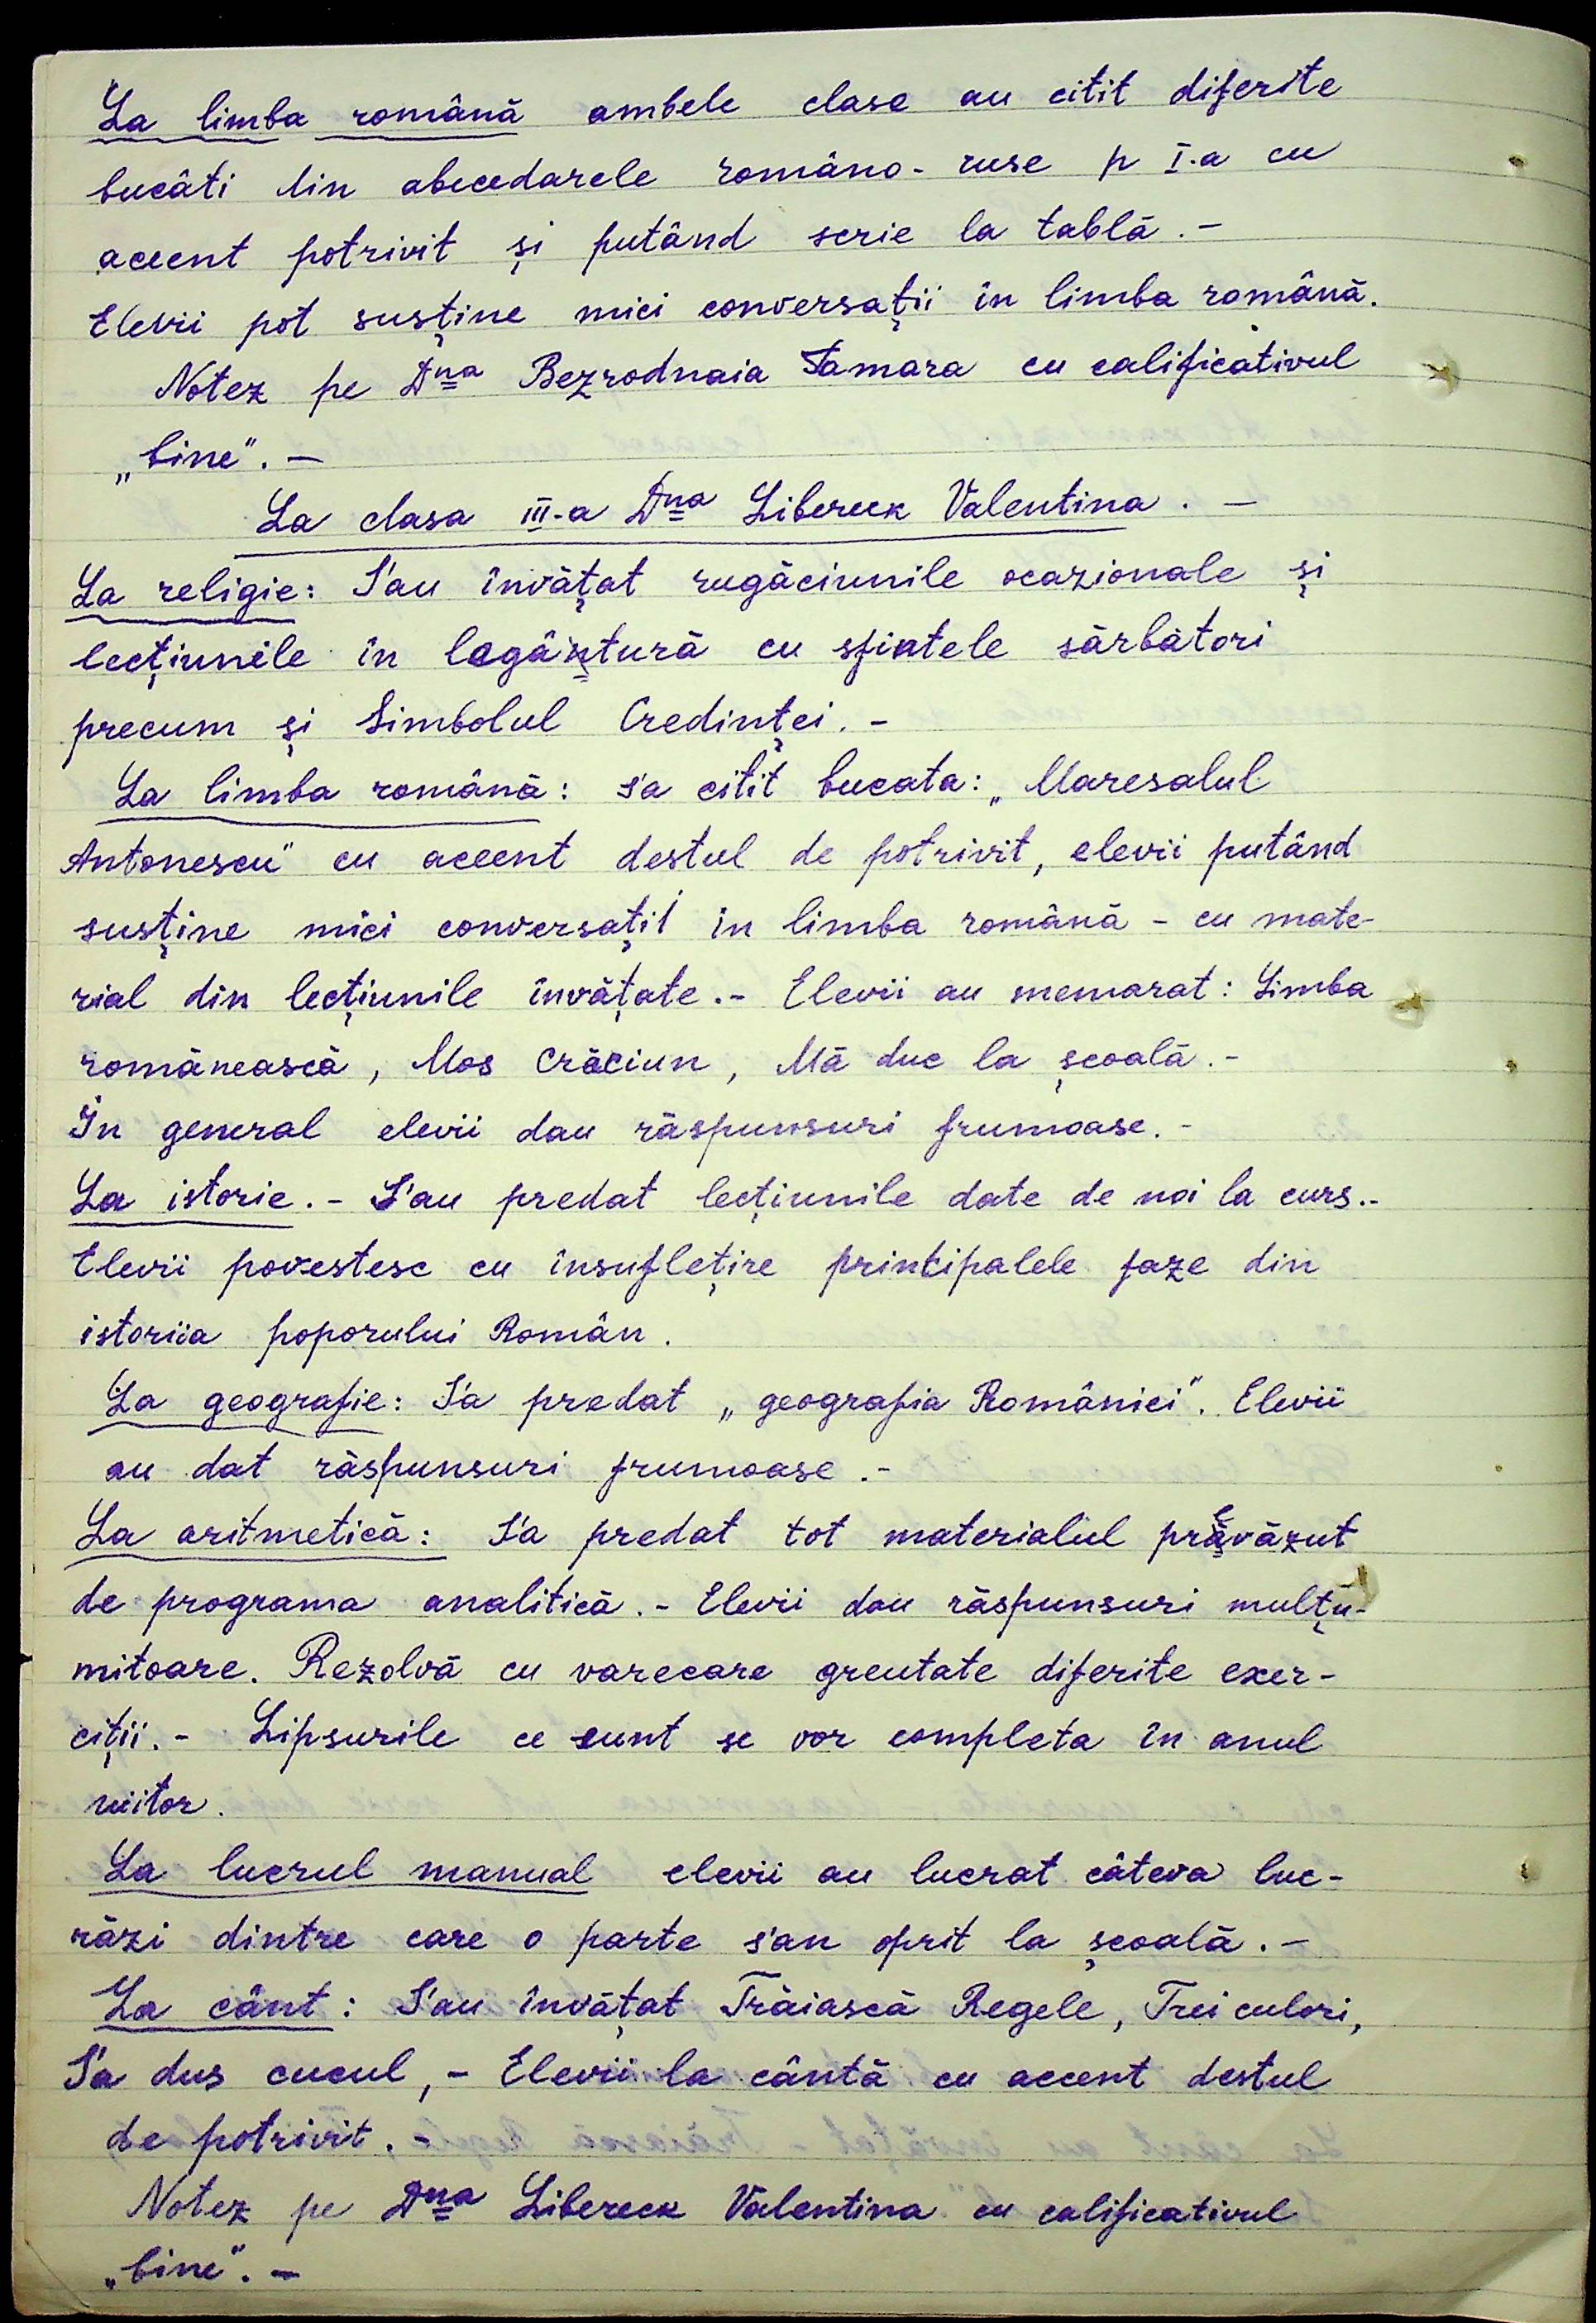 La limba română ambele clase au citit diferite
bucâti din abecedarele româno-ruse p I-a cu
accent potrivit și putând scrie la tablă.-
Elevii pot susține mici conversații în limba română.
Notez pe Dna Bezrodnaia Tamara cu calificativul
„bine”.-
La clasa III-a Dna Libereck Valentina.-
La religie: S'au învățat rugăciunile ocazionale și
lecțiunile în legăntură cu sfintele sărbători
precum și Simbolul Credinței.-
La limba română: s'a citit bucata: „Maresalul
Antonescu” cu accent destul de potrivit, elevii putând
susține mici conversații in limba română - cu mate-
rial din lecțiunile învățate.- Elevii au memarat: Limba
românească, Mos Crăciun, Mă duc la școală.-
În general elevii dau răspunsuri frumoase.-
La istorie.- S'au predat lecțiunile date de noi la curs.-
Elevii povestesc cu însuflețire principalele faze din
istoriia poporului Român.
La geografie: S'a predat „geografia României”. Elevii
au dat răspunsuri frumoase.-
La aritmetică: S'a predat tot materialul prevăzut
de programa analitică.- Elevii dau răspunsuri mulțu-
mitoare. Rezolvă cu varecare greutate diferite exer-
ciții.- Lipsurile ce sunt se vor completa în anul
viitor.
La lucrul manual elevii au lucrat câteva luc-
răzi dintre care o parte s'au oprit la școală.-
La cânt: S'au învățat Trăiască Regele, Trei culori,
S'a dus cucul,- Elevii la cântă cu accent destul
de potrivit.-
Notez pe Dna Libereck Valentina cu calificativul
„bine”.-